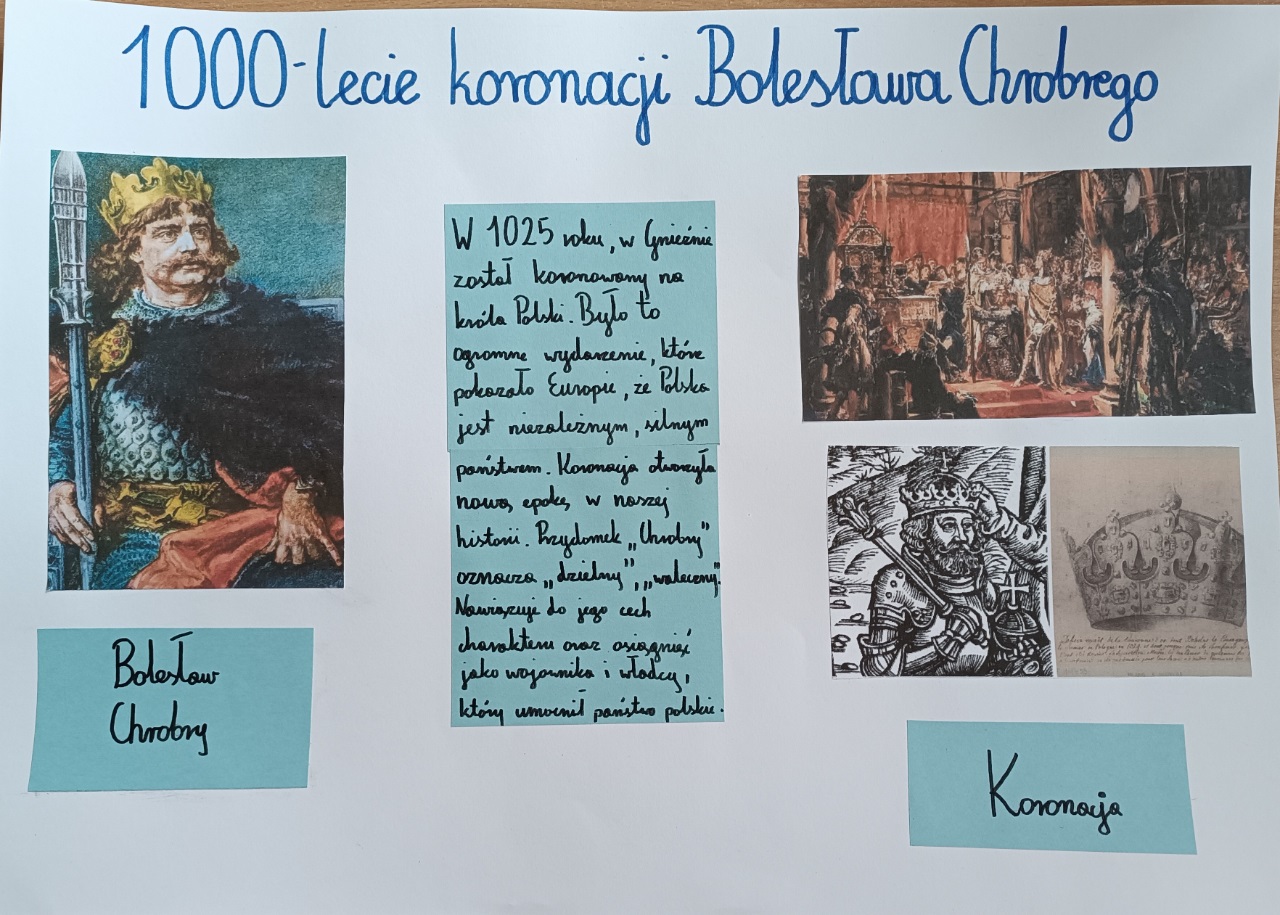 1000-lecie koronacji Bolesława Chrobrego
W 1025 roku, w Gnieźnie
został koronowany na
króla Polski. Było to
ogromne wydarzenie, które
pokazało Europie, że Polska
jest niezależnym, silnym
państwem. Koronacja otworzyła
nową epokę w naszej
historii. Przydomek „Chrobry"
oznacza „dzielny", „waleczny".
Nawiązuje do jego cech
charakteru oraz osiągnięć
jako wojownika i władcy,
który umocnił państwo polskie.
Bolesław
Chrobry
Koronacja